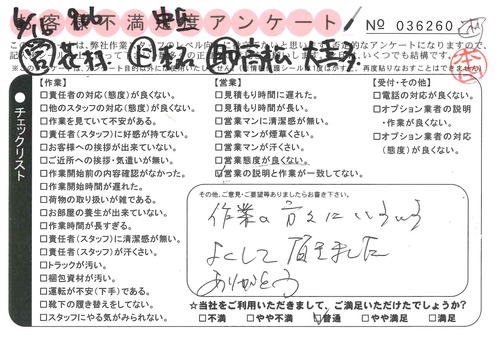 お客様不満足度アンケート
No 036260
チェックリスト
【作業】
□責任者の対応(態度)が良くない。
□他のスタッフの対応(態度)が良くない。
□作業を見ていて不安がある。
□責任者(スタッフ)に好感が持てない。
□お客様への挨拶が出来ていない。
□ご近所への挨拶・気遣いが無い。
□作業開始前の内容確認がなかった。
□作業開始時間が遅れた。
□荷物の取り扱いが雑である。
□お部屋の養生が出来ていない。
□作業時間が長すぎる。
□責任者(スタッフ)に清潔感が無い。
□責任者(スタッフ)が汗くさい。
□トラックが汚い。
□梱包資材が汚い。
□運転が不安(下手)である。
□靴下の履き替えをしてない。
□スタッフにやる気がみられない。
【営業】
□見積もり時間に遅れた。
□見積もり時間が長い。
□営業マンに清潔感が無い。
□営業マンが煙草くさい。
□営業マンが汗くさい。
□営業態度が良くない。
□営業の説明と作業が一致してない。
【受付・その他】
□電話の対応が良くない。
□オプション業者の説明
・作業が良くない。
□オプション業者の対応
(態度)が良くない。
その他、ご意見・ご要望等ありましたらお書き下さい。
作業の方々にいろいろ
よくして頂きました
ありがとう
☆当社をご利用いただきまして、ご満足いただけたでしょうか?
□不満 □やや不満 □普通 □やや満足 □満足